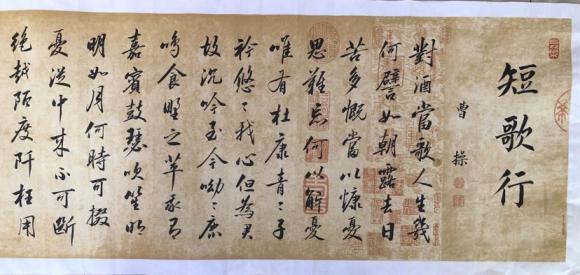 短歌行
曹操
對酒當歌人生幾
何譬如朝露去日
苦多慨當以慷憂
思難忘何以解憂
唯有杜康青〻子
衿悠〻我心但為君
故沉吟至今呦〻鹿
鳴食野之苹我有
嘉賓鼓瑟吹笙明
明如月何時可掇
憂從中來不可斷
絕越陌度阡枉用